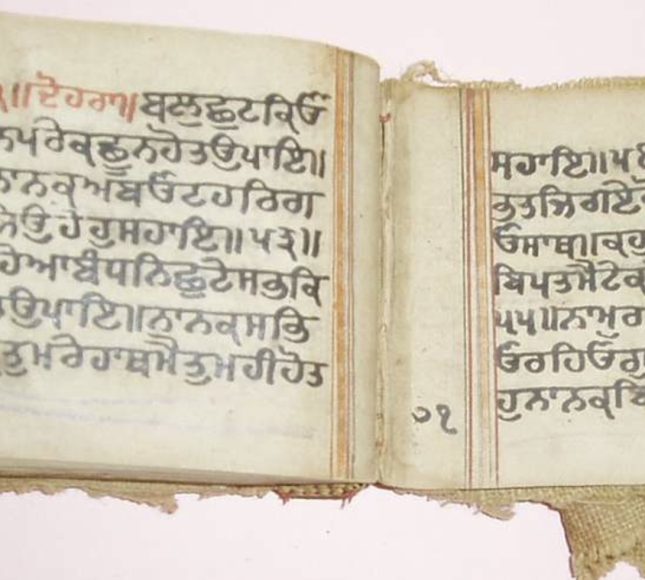 ॥ਦੋਹਰਾ॥ਬਲੁਛੁਟਕਿਓ
ਪਰੇਕਛੂਨਹੋਤਉਪਾਇ॥
ਨਾਨਕਅਬਓਟਹਰਿਗ
ਜਿਉਹੋਹੁਸਹਾਇ॥੫੩॥
ਹੋਆਬੰਧਨਿਛੁਟੇਸਭੁਕਿ
ਉਪਾਇ॥ਨਾਨਕਸਭਿ
ਤੁਮਰੇਹਾਥਮੈਤੁਮਹੀਹੋਤ
੭੧
ਸਹਾਇ॥੫੪
ਤਜਿਗਏ
ਓਸਾਥ॥ਕਹੁ
ਬਿਪਤਮੈਟੇਕ
੫੫॥ਨਾਮੁਰ
ਓਰਹਿਓਗੁ
ਹੁਨਾਨਕਇ